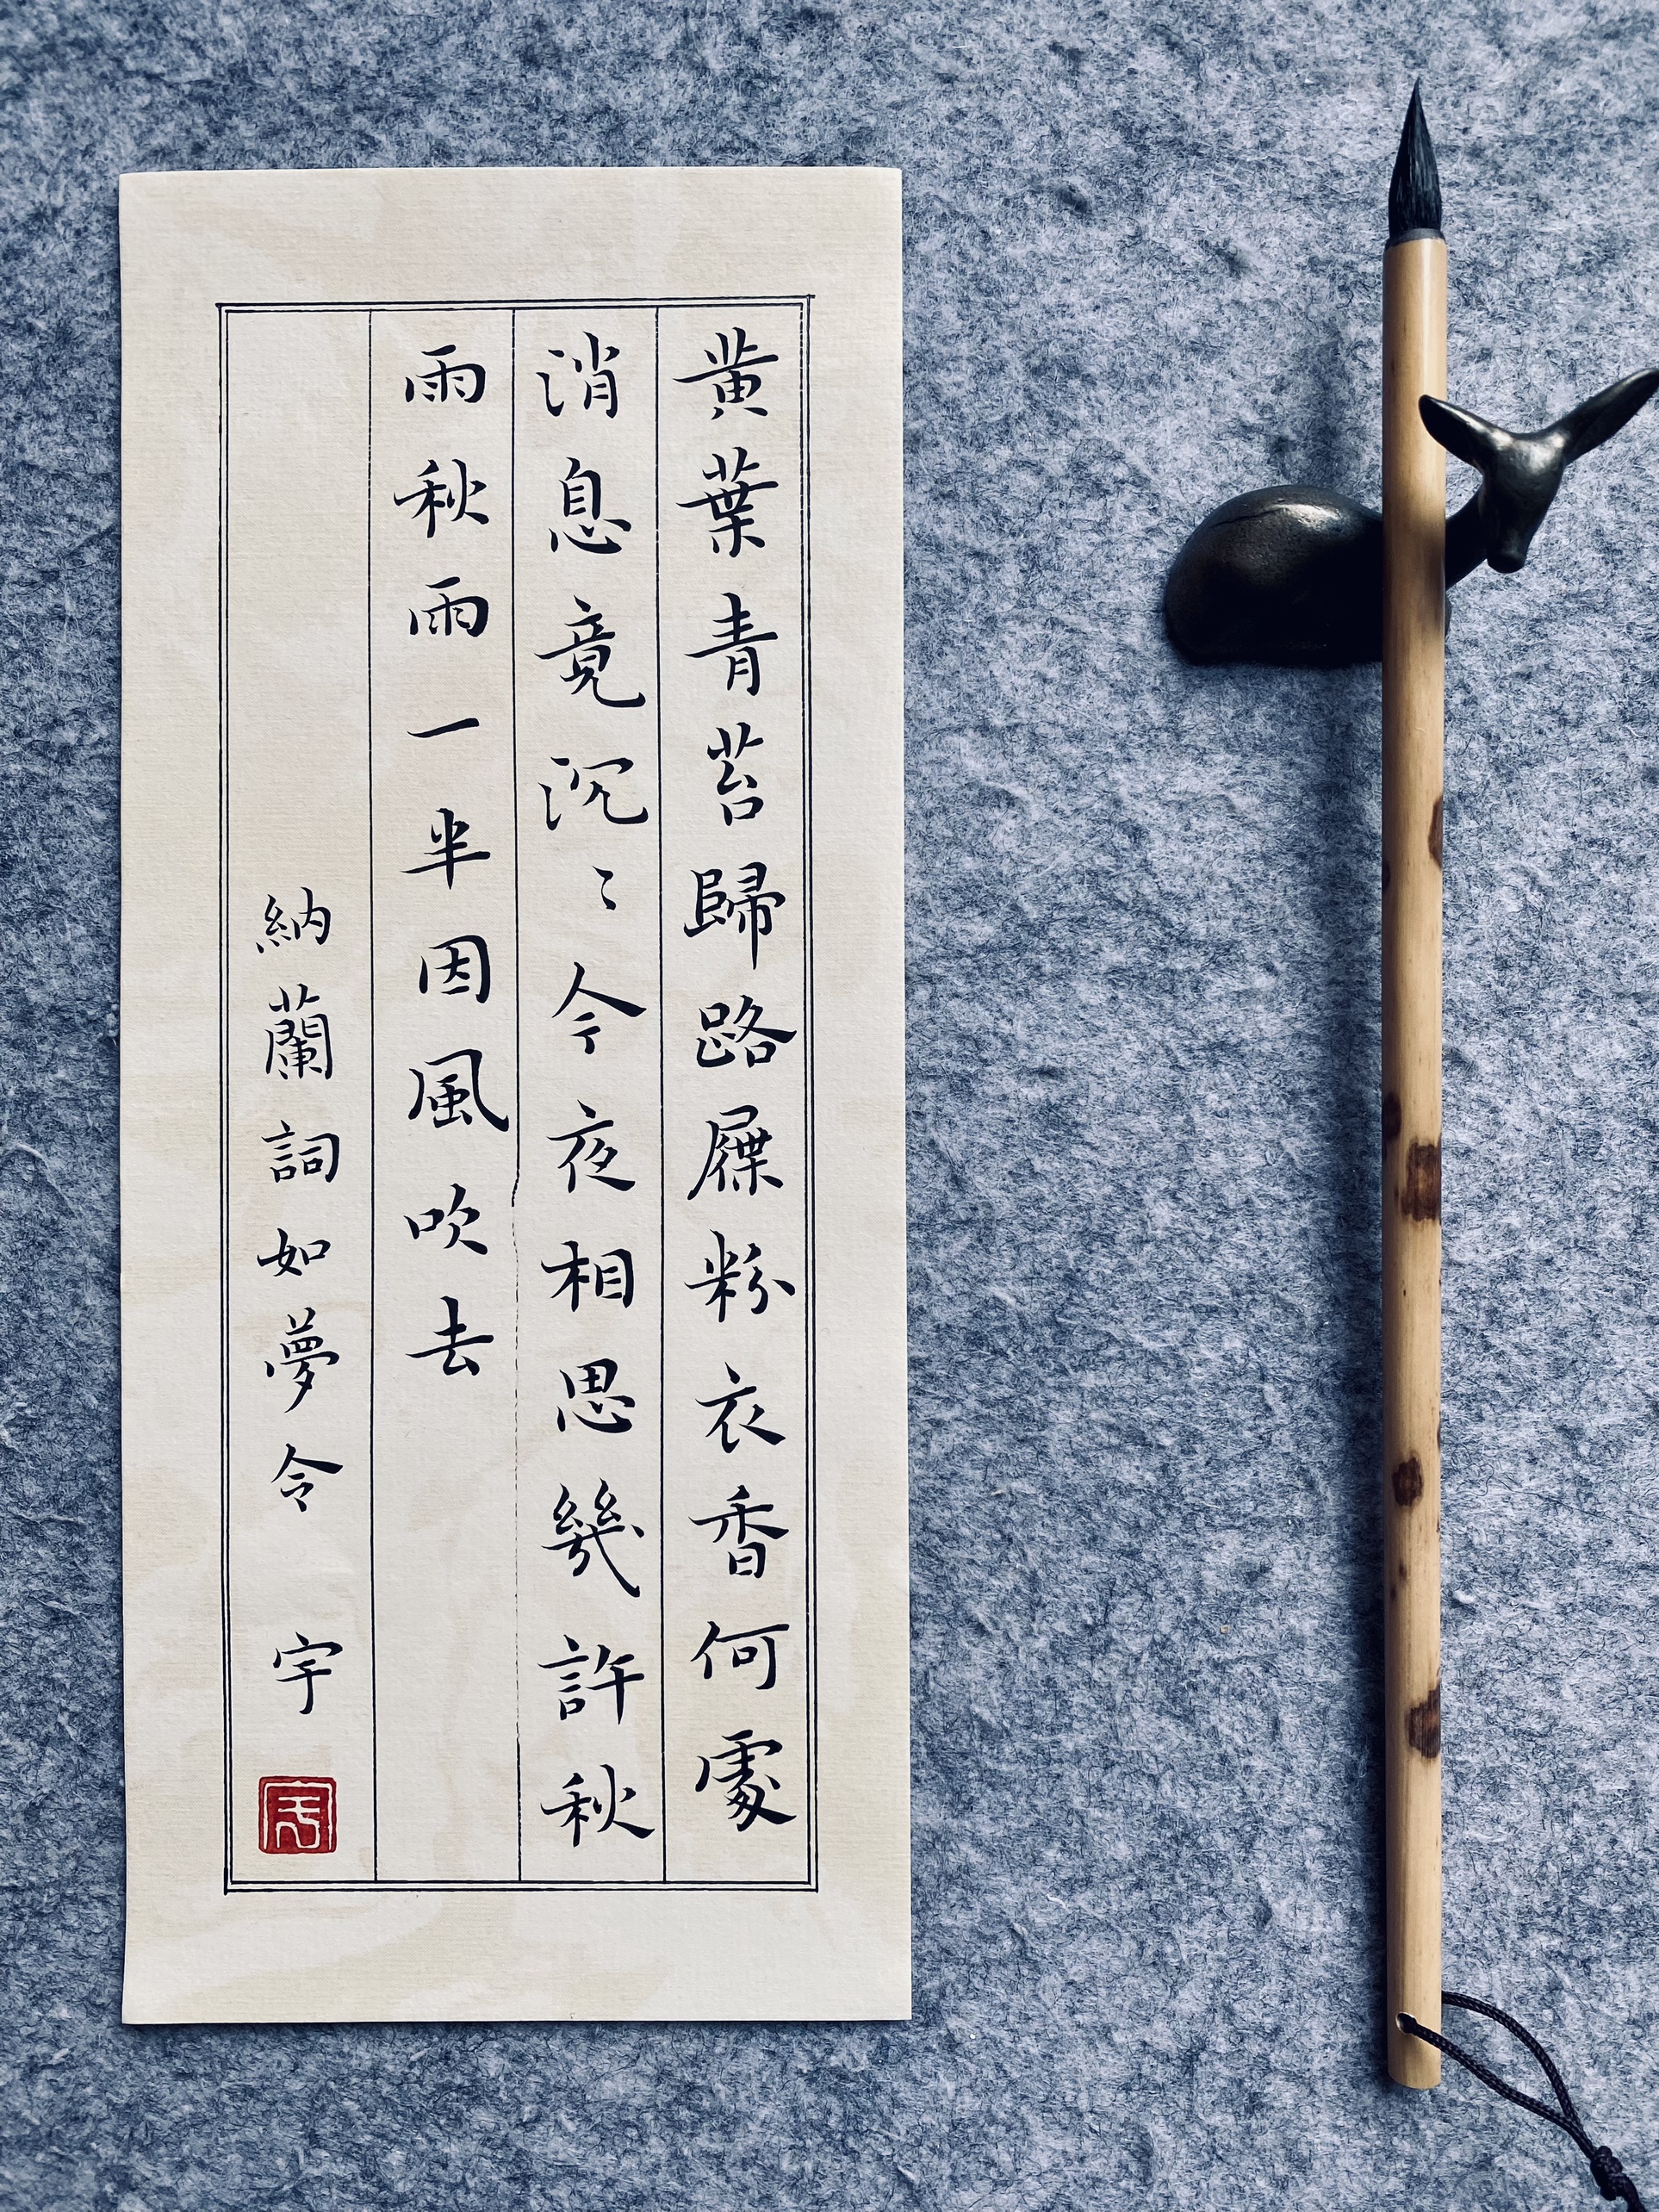 黄葉青苔歸路屧粉衣香何處
消息竟沉〻今夜相思幾許秋
雨秋雨一半因風吹去
納蘭詞如夢令 宇